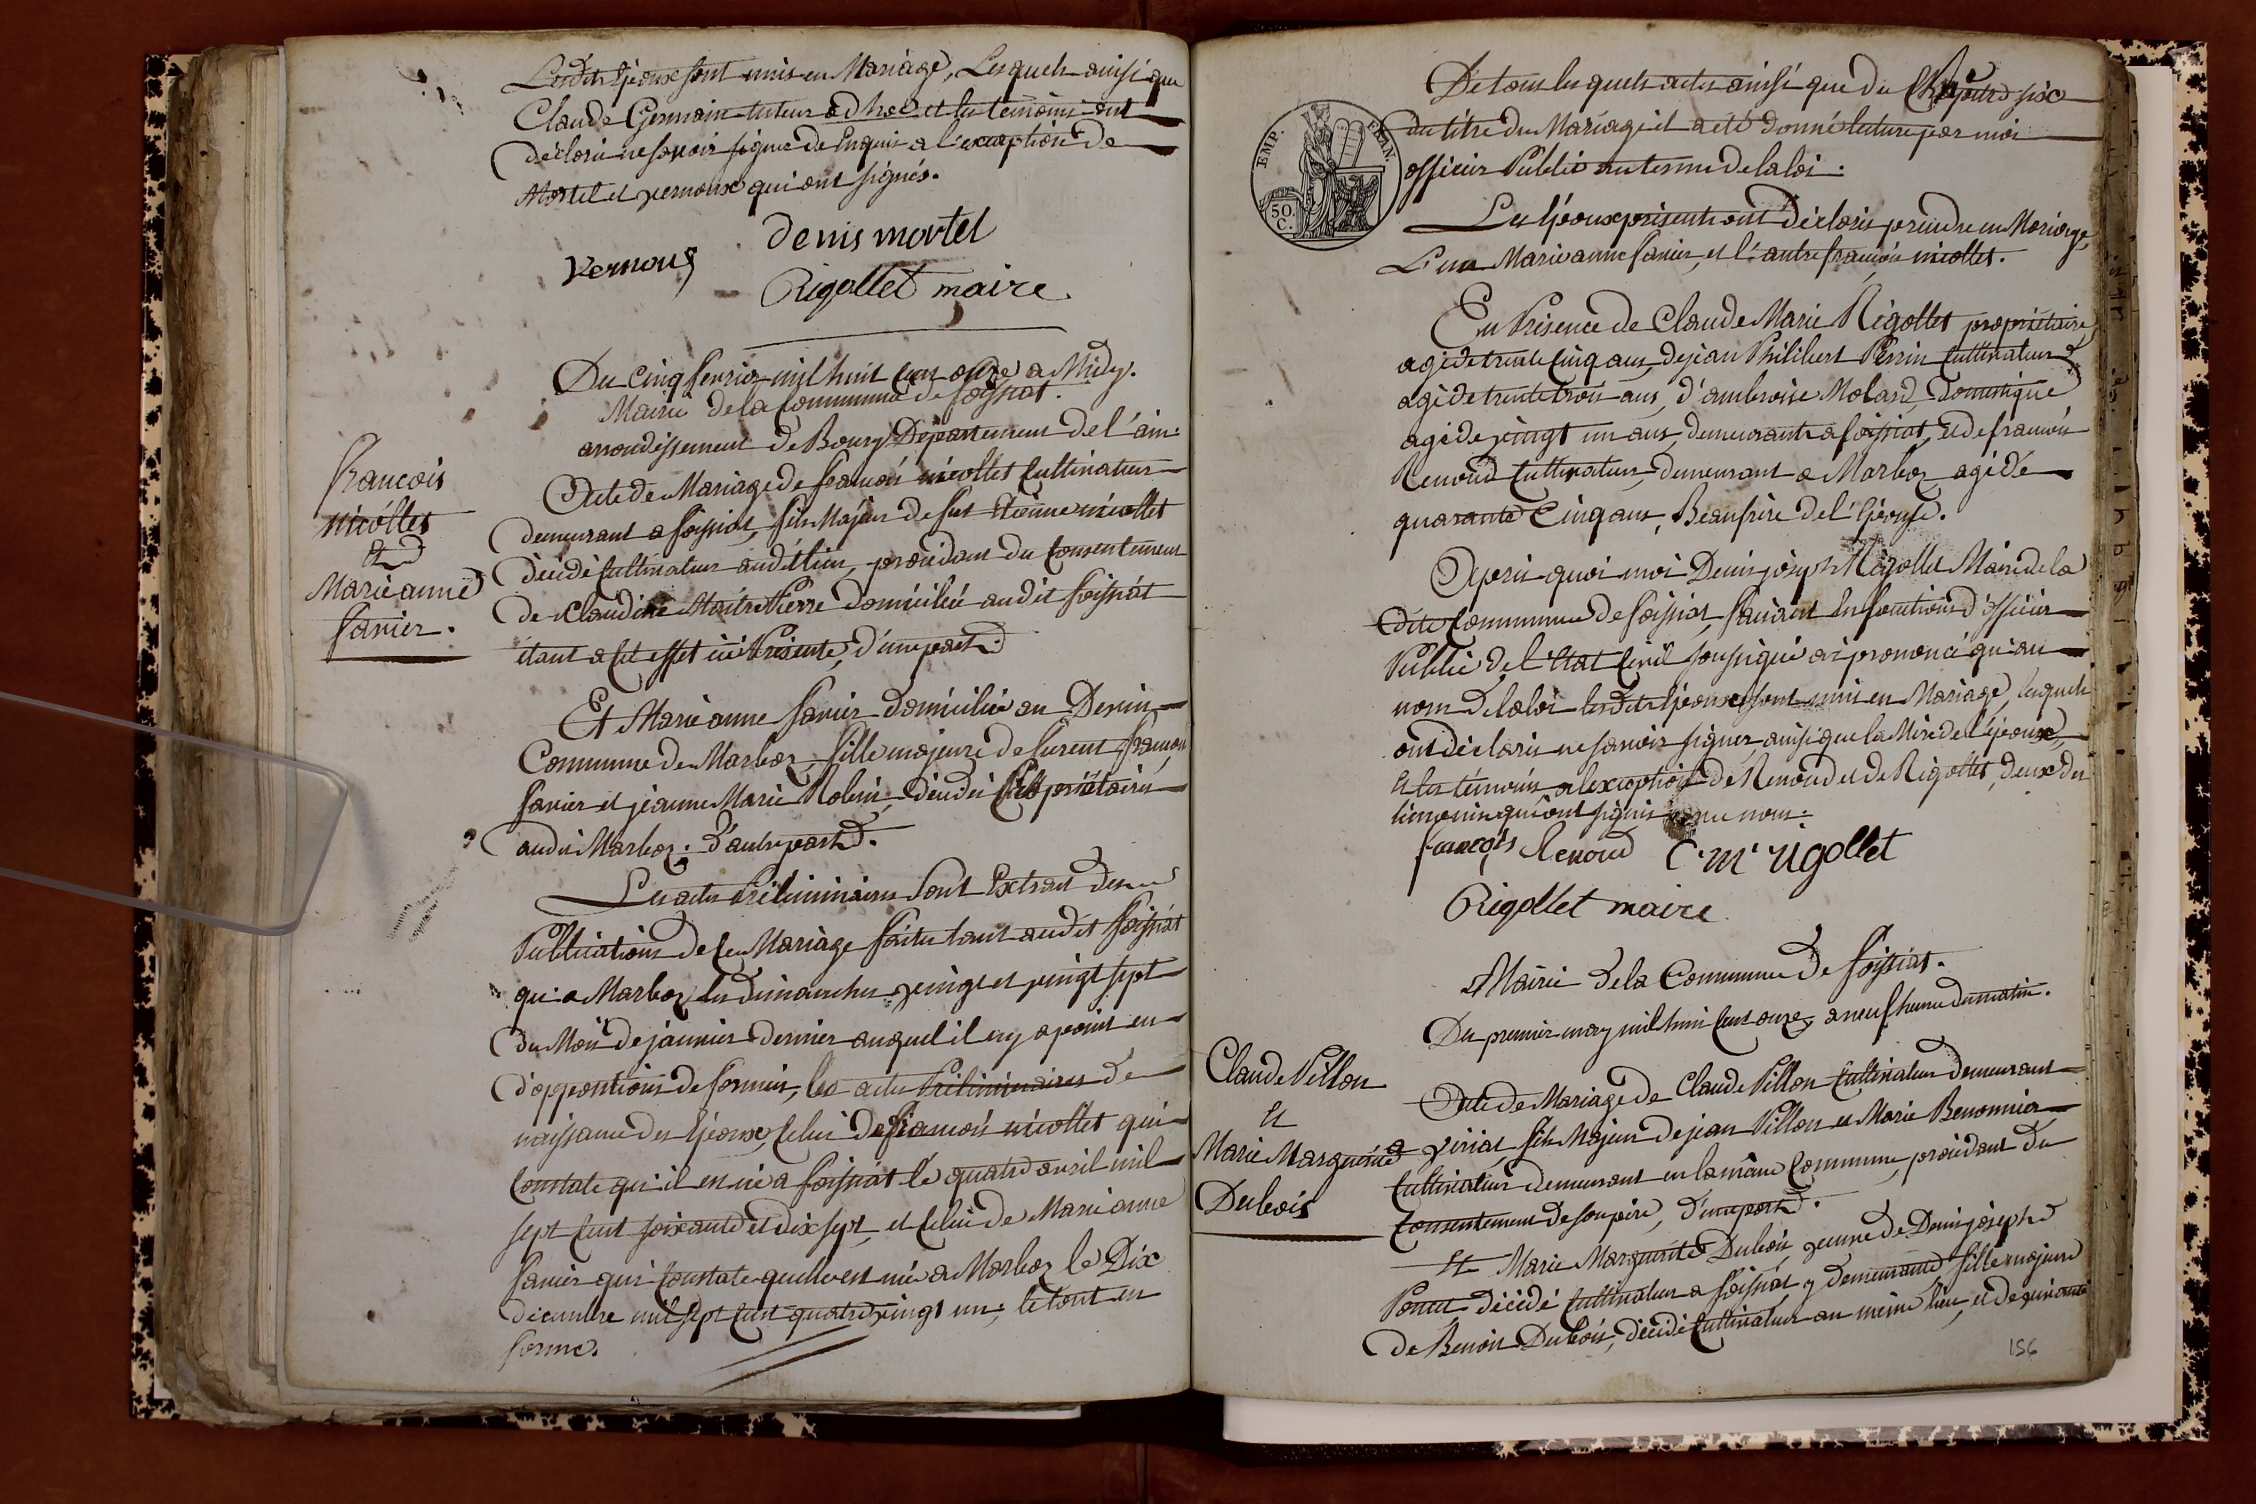 Lesdits Epoux sont unis en Mariage, Lesquels ainsi que
Claude Germain tuteur ad hoc et les temoins ont
déclaré ne savoir signer de Enquis a l'exception de
Mortel et vernoux qui ont signés.
denis mortel
vernoux
Rigollet maire
Du cinq fevrier mil huit cent onze a Midy.
Mairie de la Commune de foissiat.
arrondissement de Bourg Département de l'ain.
francois
nicollet
et
Marie anne
favier.
Acte de Mariage de francois nicollet Cultivateur
demeurant a foissiat, fils Majeur de feu Etienne nicollet
décédé Cultivateur audit lieu, procédant du Consentement
de Claudine Maitre Pierre domiciliée audit foissiat
étant a cet effet ici Présente, d'une part.
Et Marie anne favier domiciliée au Devin
Commune de Marboz, fille majeure de furent francois
favier et jeanne Marie Robin, décédés Propriétaires
audit Marboz; d'autre part.
Les actes Préliminaires sont Extrait des
Publications de ce Mariage faites tant audit foissiat
qu'a Marboz les dimanches vingt et vingt sept
du Mois de janvier dernier auquel il n'y a point eu
d'oppositions de formées, les actes Préliminaires de
naissance des Epoux, Celui de francois nicollet qui
Constate qu'il est né a foissiat le quatre avril mil
sept cent soixante et dix sept, et celui de Marie anne
favier qui Constate quelle est née a Marboz le Dix
décembre mil sept cent quatre vingt un, le tout en
forme.
De tous lesquels actes ainsi que du Chapitre six
du titre du Mariage il a été donné lecture par moi
officier Public au terme de la loi.
EMP. FRAN.
50. C.
Les Epoux présents ont déclaré prendre en Mariage
L'un Marie anne favier, et l'autre francois nicollet.
En Présence de Claude Marie Rigollet propriétaire
agé de trente Cinq ans, de jean Philibert Perrin Cultivateur
agé de trente trois ans, d'ambroise Molard, Domestique
agé de vingt un ans, demeurants a foissiat, et de francois
Renoud Cultivateur, demeurant a Marboz agé de
quarante Cinq ans, Beaufrère de l'Epouse.
Après quoi moi Denis joseph Rigollet Maire de la
dite Commune de foissiat, faisant les fonctions d'officier
Public de l'Etat Civil soussigné ai prononcé qu'au
nom de la loi lesdits Epoux sont unis en Mariage, lesquels
ont déclaré ne savoir signer, ainsi que la Mère de l'époux,
et les témoins, a l'exception de Renoud et de Rigollet, deux des
témoins qui ont signés avec nous.
francois Renoud C. M. rigollet
Rigollet maire
Mairie de la Commune de foissiat.
Du premier may mil huit cent onze, a neuf heures du matin.
Claude Pillon
et
Marie Marguerite
Dubois
Acte de Mariage de Claude Pillon Cultivateur demeurant
a viriat, fils Majeur de jean Pillon et Marie Benonnier
Cultivateurs demeurant en la même Commune, procédant du
Consentement de son père, d'une part.
Et Marie Marguerite Dubois veuve de Denis joseph
Poncet décédé Cultivateur a foissiat y demeurante fille majeure
de Benoit Dubois, décédé Cultivateur au même lieu, et de vivante
156